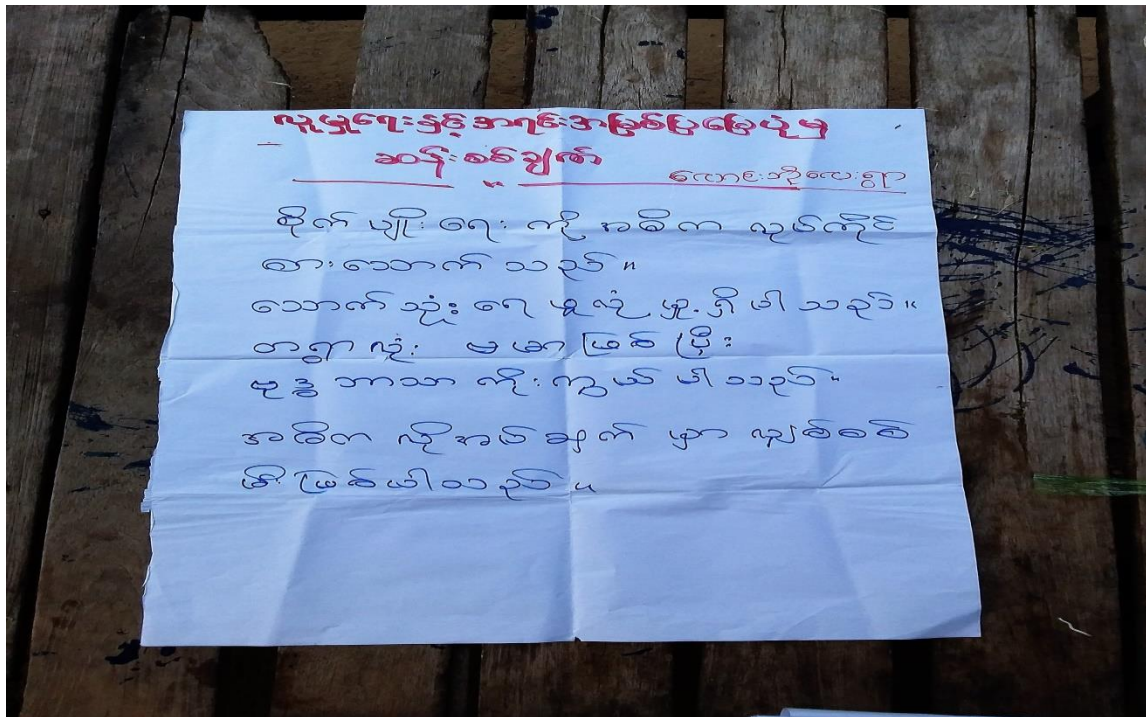 လူမှုရေးနှင့်အရင်းအမြစ်ပြမြေပုံမှ
ဆန်းစစ်ချက်
လောင်းဘိုလေးရွာ
စိုက်ပျိုးရေးကို အဓိက လုပ်ကိုင်
စားသောက်သည်။
သောက်သုံးရေ ဖူလုံမှု့ရှိပါသည်။
တရွာလုံး ဗမာဖြစ်ပြီး
ဗုဒ္ဓဘာသာကိုးကွယ်ပါသည်။
အဓိက လိုအပ်ချက်မှာ လျှစ်စစ်
မီးဖြစ်ပါသည်။